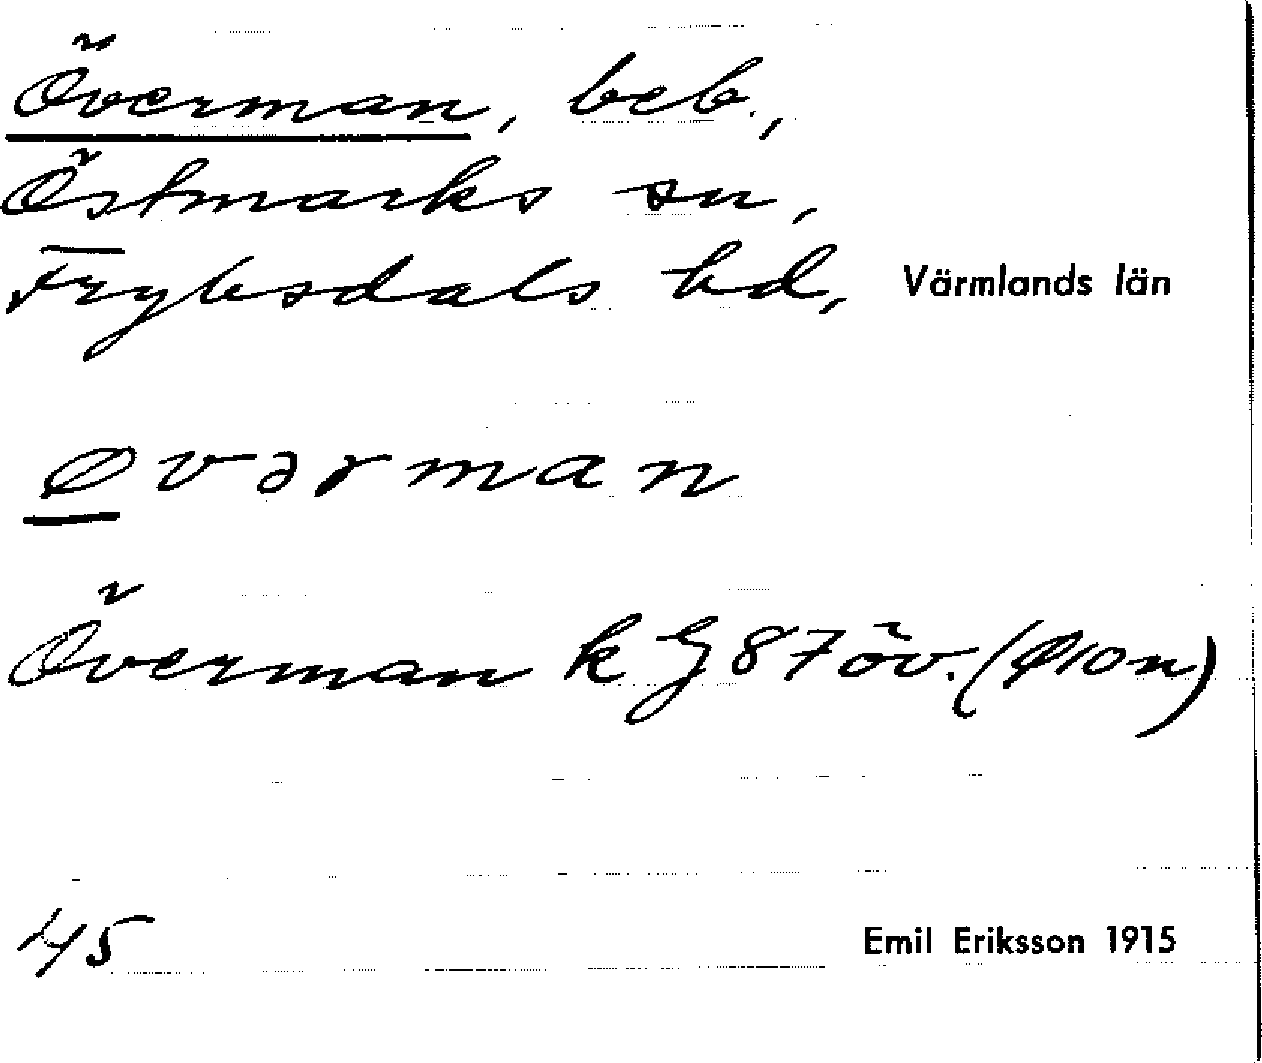 Överman, beb.,
Östmarks sn,
Fryksdals hd, Värmlands län
øvərman
Överman k G 87 öv. (Ø10n)
45
Emil Eriksson 1915